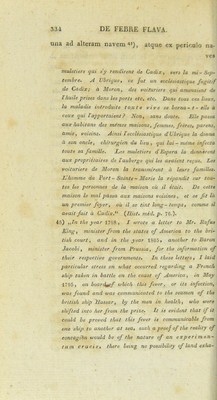 334 DE FEBRE FLAVA.
una ad alteram navem 42), atque ex periculo na-
ves
muletiers qui s'y rendirent de Cadix, vers la mi-Sep-
tembre. A Ubrique, ce fut un ecclésiastique fugitif
de Cadix; à Moron, des voituriers qui amenoient de
l'huile prises dans les ports etc. etc. Dans tous ces lieux,
la maladie introduite resta-t-elle
ceux qui l'apportaient? Non, sans doute. Elle passa
aux habitans des mêmes maisons, femme, frères, parens,
amis, voisins. Ainsi l'ecclésiastique d'Ubrique la donna
à son oncle, chirurgien du lieu, qui lui-même infecta
toute sa famille. Les muletiers d'Espera la donnèrent
aux propriétaires de l'auberge qui les avoient reçus. Les
voituriers de Moron la transmirent à leurs familles.
L'homme du Port-Sainte-Marie la répandit sur tou-
tes les personnes de la maison où il étoit. De cette
maison le mal passa aux maisons voisines, et se fit là
un premier foyer, où il se tint long-temps, comme il
avait fait à Cadix." (Hist. méd. p. 78.).
42) „In the year 1798, I wrote a letter to Mr. Rufus
King, minister from the states of America to the bri-
tish court, and in the year 1803, another to Baron
Jacobi, minister from Prussia, for the information of
their respective governments. In these letters, I laid
particular stress on what occurred regarding a French
ship taken in battle on the coast of America, in May
1795, on board of which this fever, or its infection,
was found and was communicated to the seamen of the
british ship Hussar, by the men in health, who were
shifted into her from the prize. It is evident that if it
could be proved that this fever is communicable from
one ship to another at sea, such a proof of the reality of
contagion would be of the nature of an experimen-
tum crucis, there being no possibility of land exha-